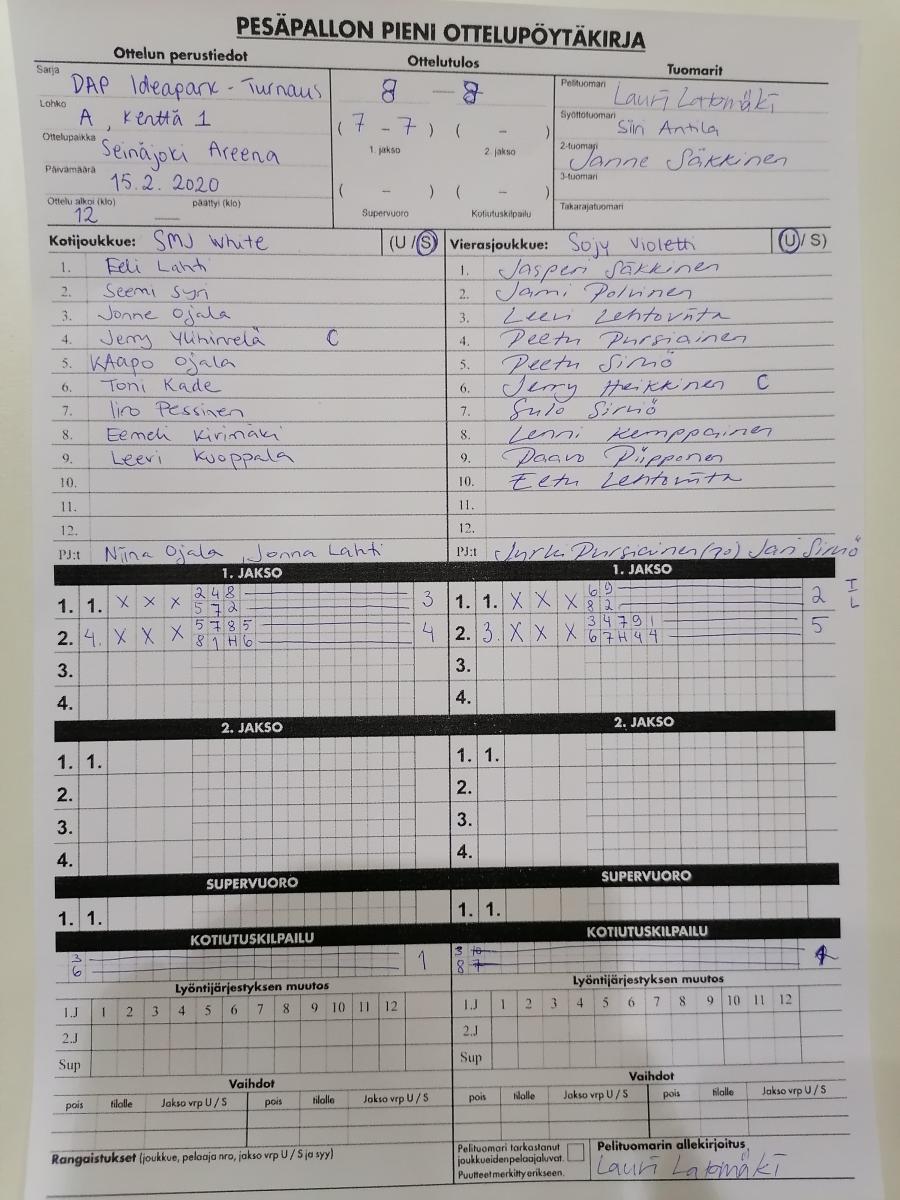 PESÄPALLON PIENI OTTELUPÖYTÄKIRJA
Ottelun perustiedot
Ottelutulos
Tuomarit
Sarja
DAP Ideapark - Turnaus
Lohko
A, Kenttä 1
Ottelupaikka
Seinäjoki Areena
Päivämäärä
15.2. 2020
Ottelu alkoi (klo) päättyi (klo)
12 —
8 — 8
( 7 - 7 ) ( - )
1. jakso 2. jakso
( - ) ( - )
Supervuoro Kotiutuskilpailu
Pelituomari
Lauri Latomäki
Syöttötuomari
Siiri Antila
2-tuomari
Janne Säkkinen
3-tuomari
Takarajatuomari
Kotijoukkue: SMJ White (U / S)
1. Eeli Lahti
2. Seemi Syri
3. Jonne Ojala
4. Jerry Ylihirvelä C
5. KAapo Ojala
6. Toni Kade
7. Iiro Pessinen
8. Eemeli Kirimäki
9. Leevi Kuoppala
10.
11.
12.
PJ:t Niina Ojala, Jonna Lahti
Vierasjoukkue: Sojy Violetti (U / S)
1. Jasperi Säkkinen
2. Jami Polvinen
3. Leevi Lehtoviita
4. Peetu Pursiainen
5. Peetu Simiö
6. Jerry Heikkinen C
7. Sulo Simiö
8. Lenni Kemppainen
9. Paavo Piipponen
10. Eetu Lehtoviita
11.
12.
PJ:t Jyrki Pursiainen (70) Jari Simiö
1. JAKSO
1. 1. X X X 2 4 8 3
5 7 2
2. 4. X X X 5 7 8 5 4
8 1 H 6
3.
4.
1. JAKSO
1. 1. X X X 6 9 2 I L
8 2
2. 3. X X X 3 4 7 9 1 5
6 7 H 4 4
3.
4.
2. JAKSO
1. 1.
2.
3.
4.
2. JAKSO
1. 1.
2.
3.
4.
SUPERVUORO
1. 1.
SUPERVUORO
1. 1.
KOTIUTUSKILPAILU
3 1
6
KOTIUTUSKILPAILU
3 10
8 7
Lyöntijärjestyksen muutos
1.J 1 2 3 4 5 6 7 8 9 10 11 12
2.J
Sup
Lyöntijärjestyksen muutos
1.J 1 2 3 4 5 6 7 8 9 10 11 12
2.J
Sup
Vaihdot
pois tilalle Jakso vrp U / S pois tilalle Jakso vrp U / S
Vaihdot
pois tilalle Jakso vrp U / S pois tilalle Jakso vrp U / S
Rangaistukset (joukkue, pelaaja nro, jakso vrp U / S ja syy)
Pelituomari tarkastanut
joukkueidenpelaajaluvat.
Puutteet merkitty erikseen.
Pelituomarin allekirjoitus
Lauri Latomäki